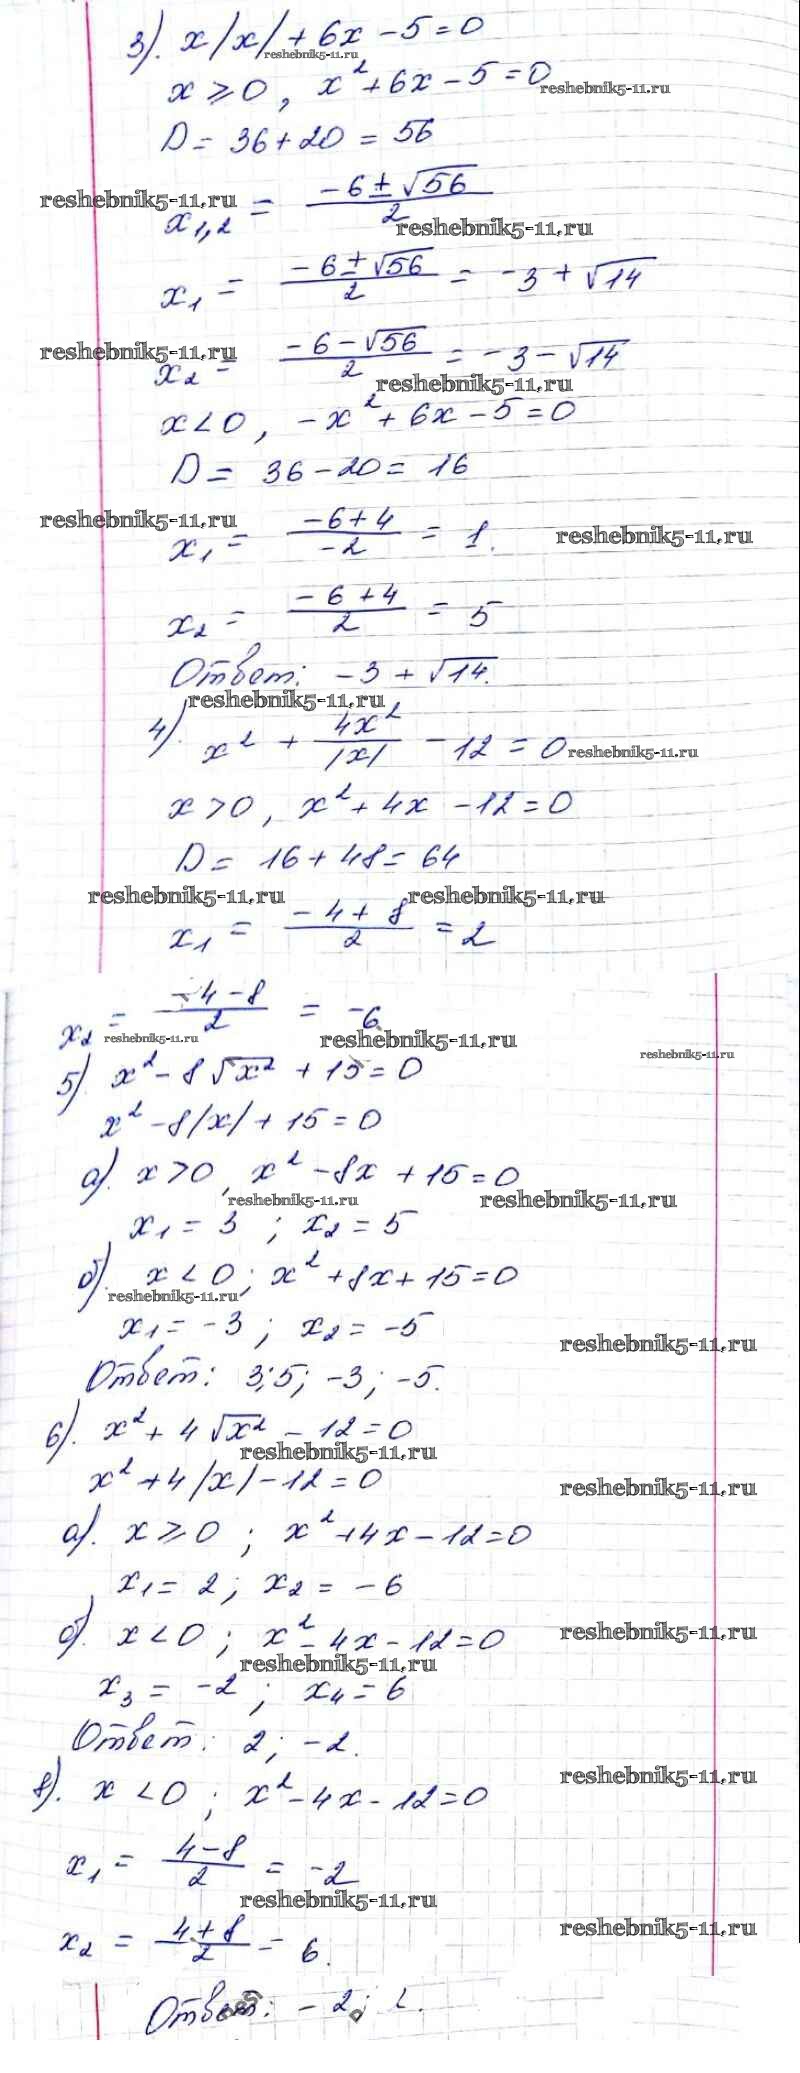 3). x/x/ + 6x - 5 = 0
reshebnik5-11.ru
x ⩾ 0, x² + 6x - 5 = 0
reshebnik5-11.ru
D = 36 + 20 = 56
reshebnik5-11.ru
x₁,₂ = (-6 ± √56)/2
reshebnik5-11.ru
x₁ = (-6 ± √56)/2 = -3 + √14
reshebnik5-11.ru
x₂ = (-6 - √56)/2 = -3 - √14
reshebnik5-11.ru
x < 0, -x² + 6x - 5 = 0
D = 36 - 20 = 16
reshebnik5-11.ru
x₁ = (-6 + 4)/-2 = 1.
reshebnik5-11.ru
x₂ = (-6 + 4)/2 = 5
Ответ: -3 + √14.
reshebnik5-11.ru
4). x² + 4x²//x/ - 12 = 0
reshebnik5-11.ru
x > 0, x² + 4x - 12 = 0
D = 16 + 48 = 64
reshebnik5-11.ru reshebnik5-11.ru
x₁ = (-4 + 8)/2 = 2
x₂ = (-4 - 8)/2 = -6
reshebnik5-11.ru reshebnik5-11.ru
reshebnik5-11.ru
5). x² - 8√x² + 15 = 0
x² - 8/x/ + 15 = 0
а). x > 0, x² - 8x + 15 = 0
reshebnik5-11.ru reshebnik5-11.ru
x₁ = 3 ; x₂ = 5
б). x < 0; x² + 8x + 15 = 0
reshebnik5-11.ru
x₁ = -3 ; x₂ = -5
reshebnik5-11.ru
Ответ: 3; 5; -3; -5.
6). x² + 4√x² - 12 = 0
reshebnik5-11.ru
x² + 4/x/ - 12 = 0
reshebnik5-11.ru
а). x ⩾ 0 ; x² + 4x - 12 = 0
x₁ = 2; x₂ = -6
б). x < 0 ; x² - 4x - 12 = 0
reshebnik5-11.ru
reshebnik5-11.ru
x₃ = -2 ; x₄ = 6
Ответ: 2; -2.
reshebnik5-11.ru
в). x < 0 ; x² - 4x - 12 = 0
x₁ = (4 - 8)/2 = -2
reshebnik5-11.ru
x₂ = (4 + 8)/2 = 6.
reshebnik5-11.ru
Ответ: -2;